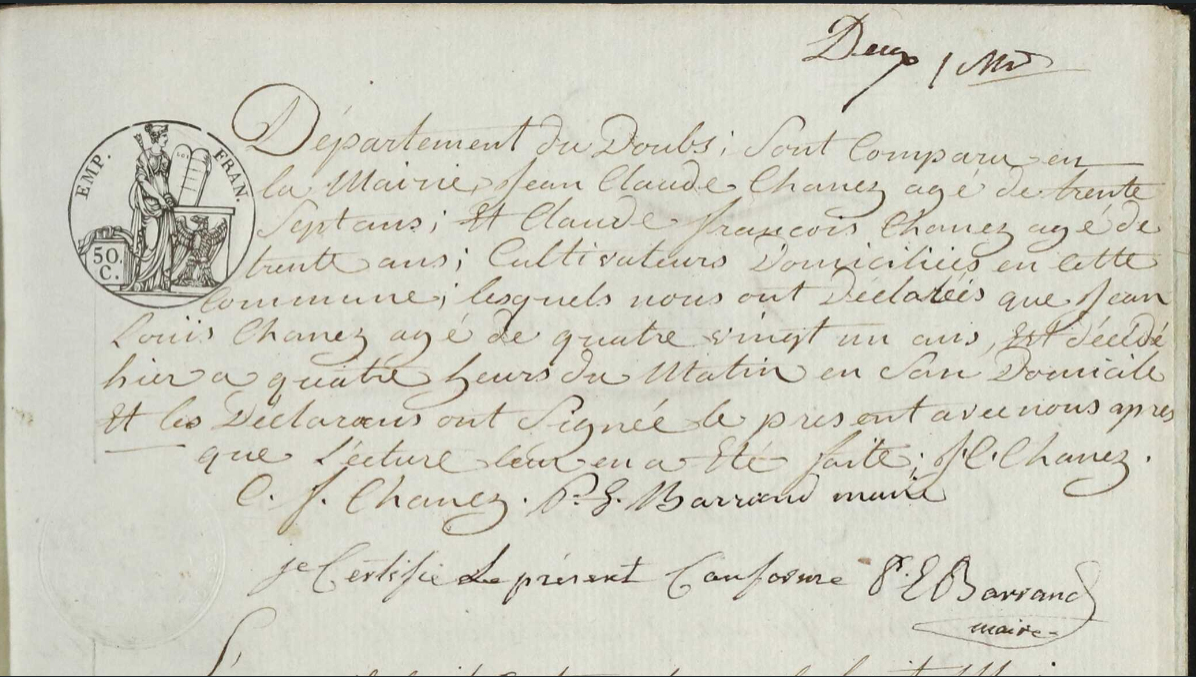 Deux
EMP. FRAN.
50.
C.
Département du Doubs; Sont Comparu en
la Mairie, Jean Claude Chanez agé de trente
Sept ans; Et Claude françois Chanez agé de
trente ans; Cultivateurs Domiciliées en cette
Commune; lesquels nous ont Déclarées que Jean
Louïs Chanez agé de quatre vingt un ans, Est décédé
hier a quatre heurs du Matin en Son Domicile
Et les Déclarans ont Signée le present avec nous apres
que Lecture leur en a Eté faite; J. C. Chanez.
C. f. Chanez. P. E. Barrand maire
je Certifie Le présent Conforme P. E Barrand
maire